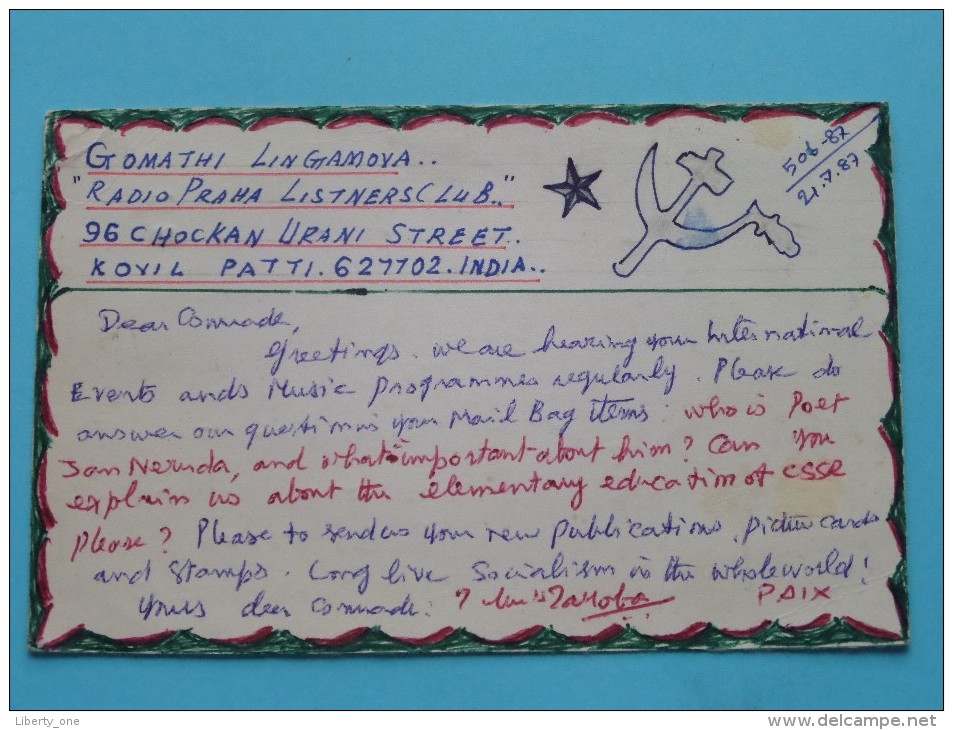 GOMATHI LINGAMOVA..
"RADIO PRAHA LISTNERS CLUB.."
96 CHOCKAN URANI STREET.
KOVIL PATTI. 627702. INDIA..
506-87
21.7.87
Dear Comrade,
Greetings. We are hearing your International
Events and Music programmes regularly. Please do
answer our question in your Mail Bag items: Who is Poet
Jan Neruda, and what's important about him? Can you
explain us about the elementary education of CSSR
please? Please to send us your new publications, picture cards
and stamps. Long live Socialism in the whole world!
Yours dear comrade:
PAIX
Liberty_one
www.delcampe.net